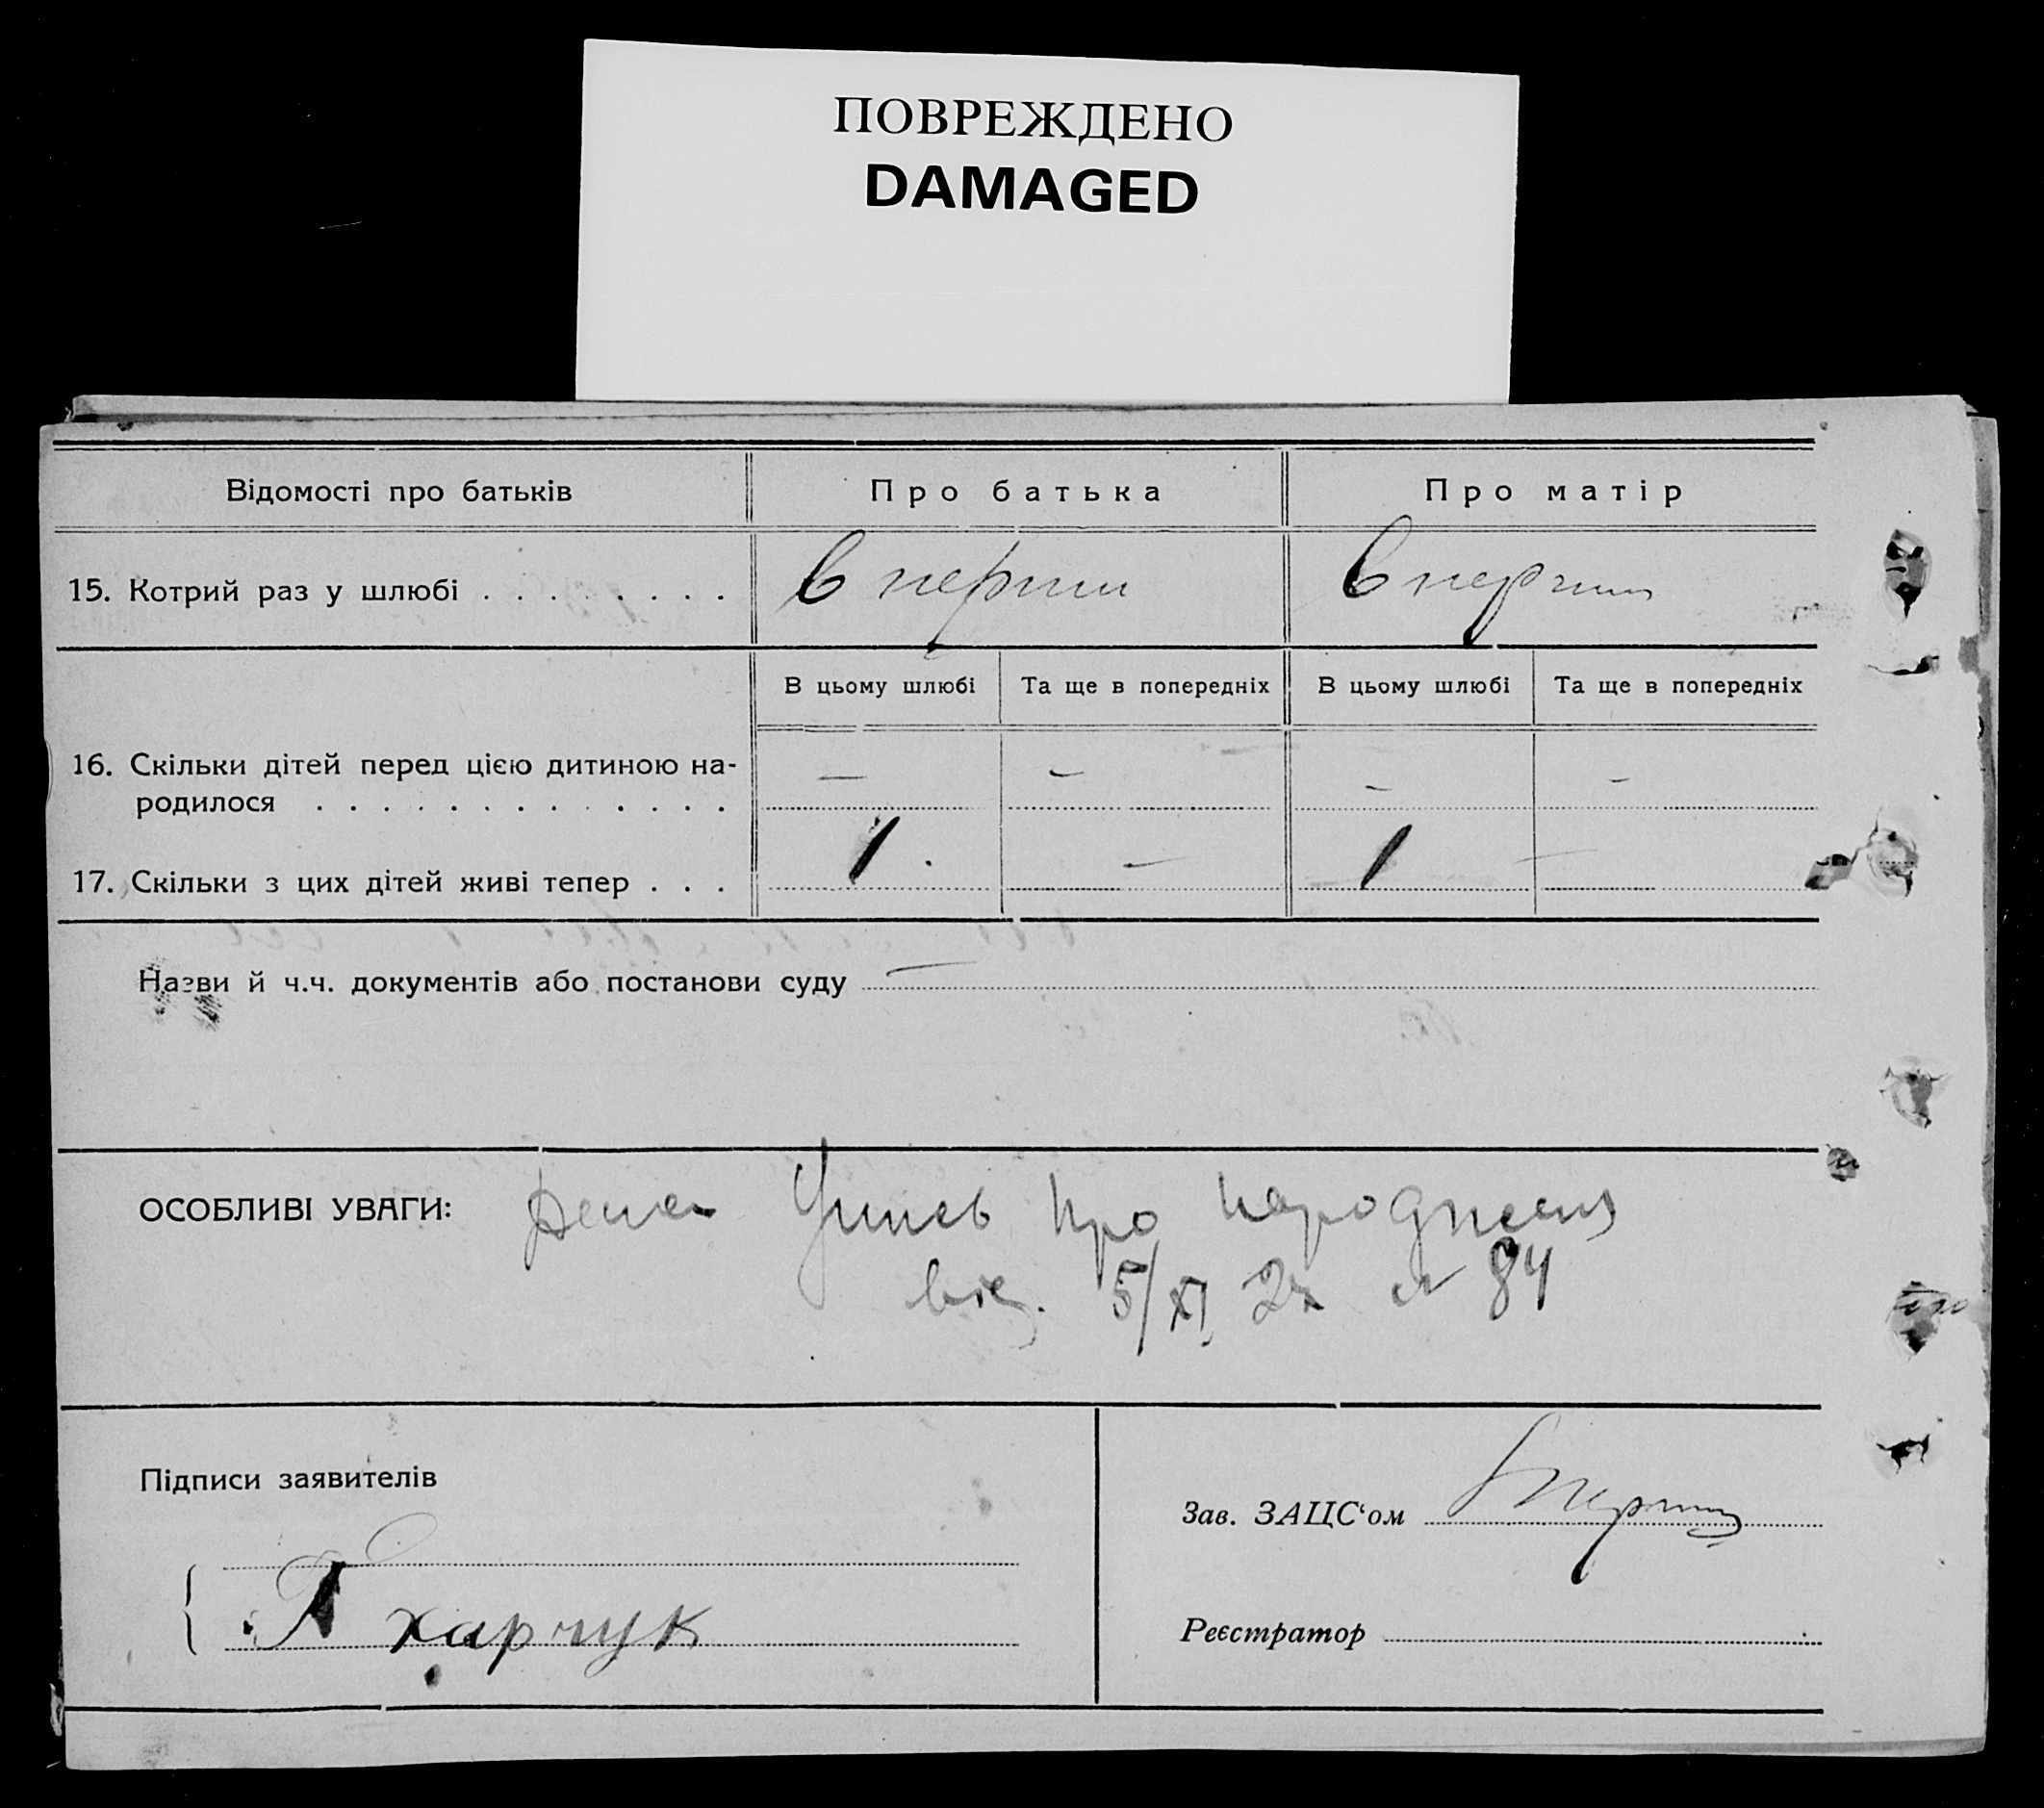 ПОВРЕЖДЕНО
DAMAGED
Відомості про батьків
Про батька
Про матір
15. Котрий раз у шлюбі . . . . . . . .
в перши
в перши
В цьому шлюбі
Та ще в попередніх
В цьому шлюбі
Та ще в попередніх
16. Скільки дітей перед цією дитиною на-
родилося . . . . . . . . . . . . .
— — — —
17. Скільки з цих дітей живі тепер . . .
1 — 1 —
Назви й ч.ч. документів або постанови суду —
ОСОБЛИВІ УВАГИ:
про
від. 5/XI 27 № 84
Підписи заявителів
Харчук
Зав. ЗАЦС‘ом
Реєстратор